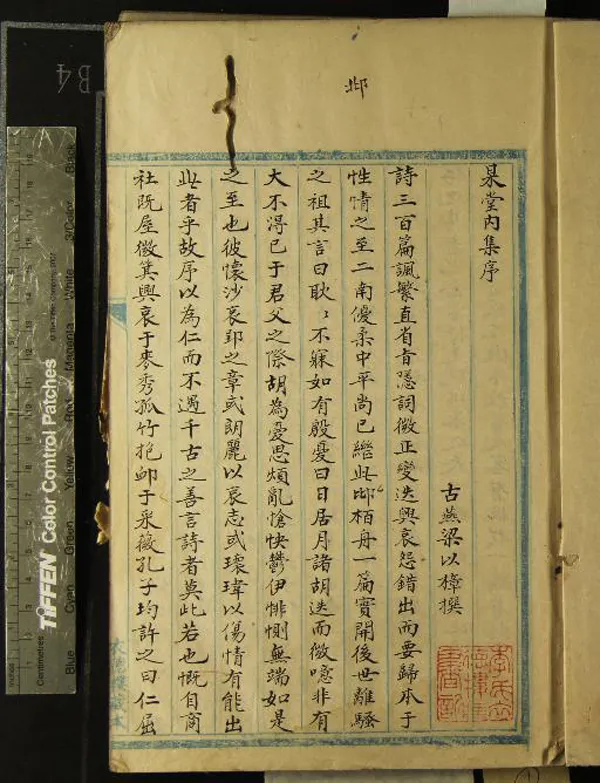 邶
杲堂內集序
古燕梁以樟撰
詩三百篇諷繁直省旨隱詞微正變迭興哀怨錯出而要歸本于
性情之至二南優柔中平尚已繼此邶柏舟一篇實開後世離騷
之祖其言曰耿〻不寐如有殷憂曰日居月諸胡迭而微噫非有
大不得已于君父之際胡為憂思煩亂愴怏鬱伊悱惻無端如是
之至也彼懷沙哀郢之章或朗麗以哀志或瓌瑋以傷情有能出
此者乎故序以為仁而不遇千古之善言詩者莫此若也慨自商
社既屋微箕興哀于麥秀孤竹抱卹于采薇孔子均許之曰仁屈
B4
TIFFEN Color Control Patches
Blue
Cyan
Green
Yellow
Red
Magenta
White
3/Color
Black
Centimetres
Inches